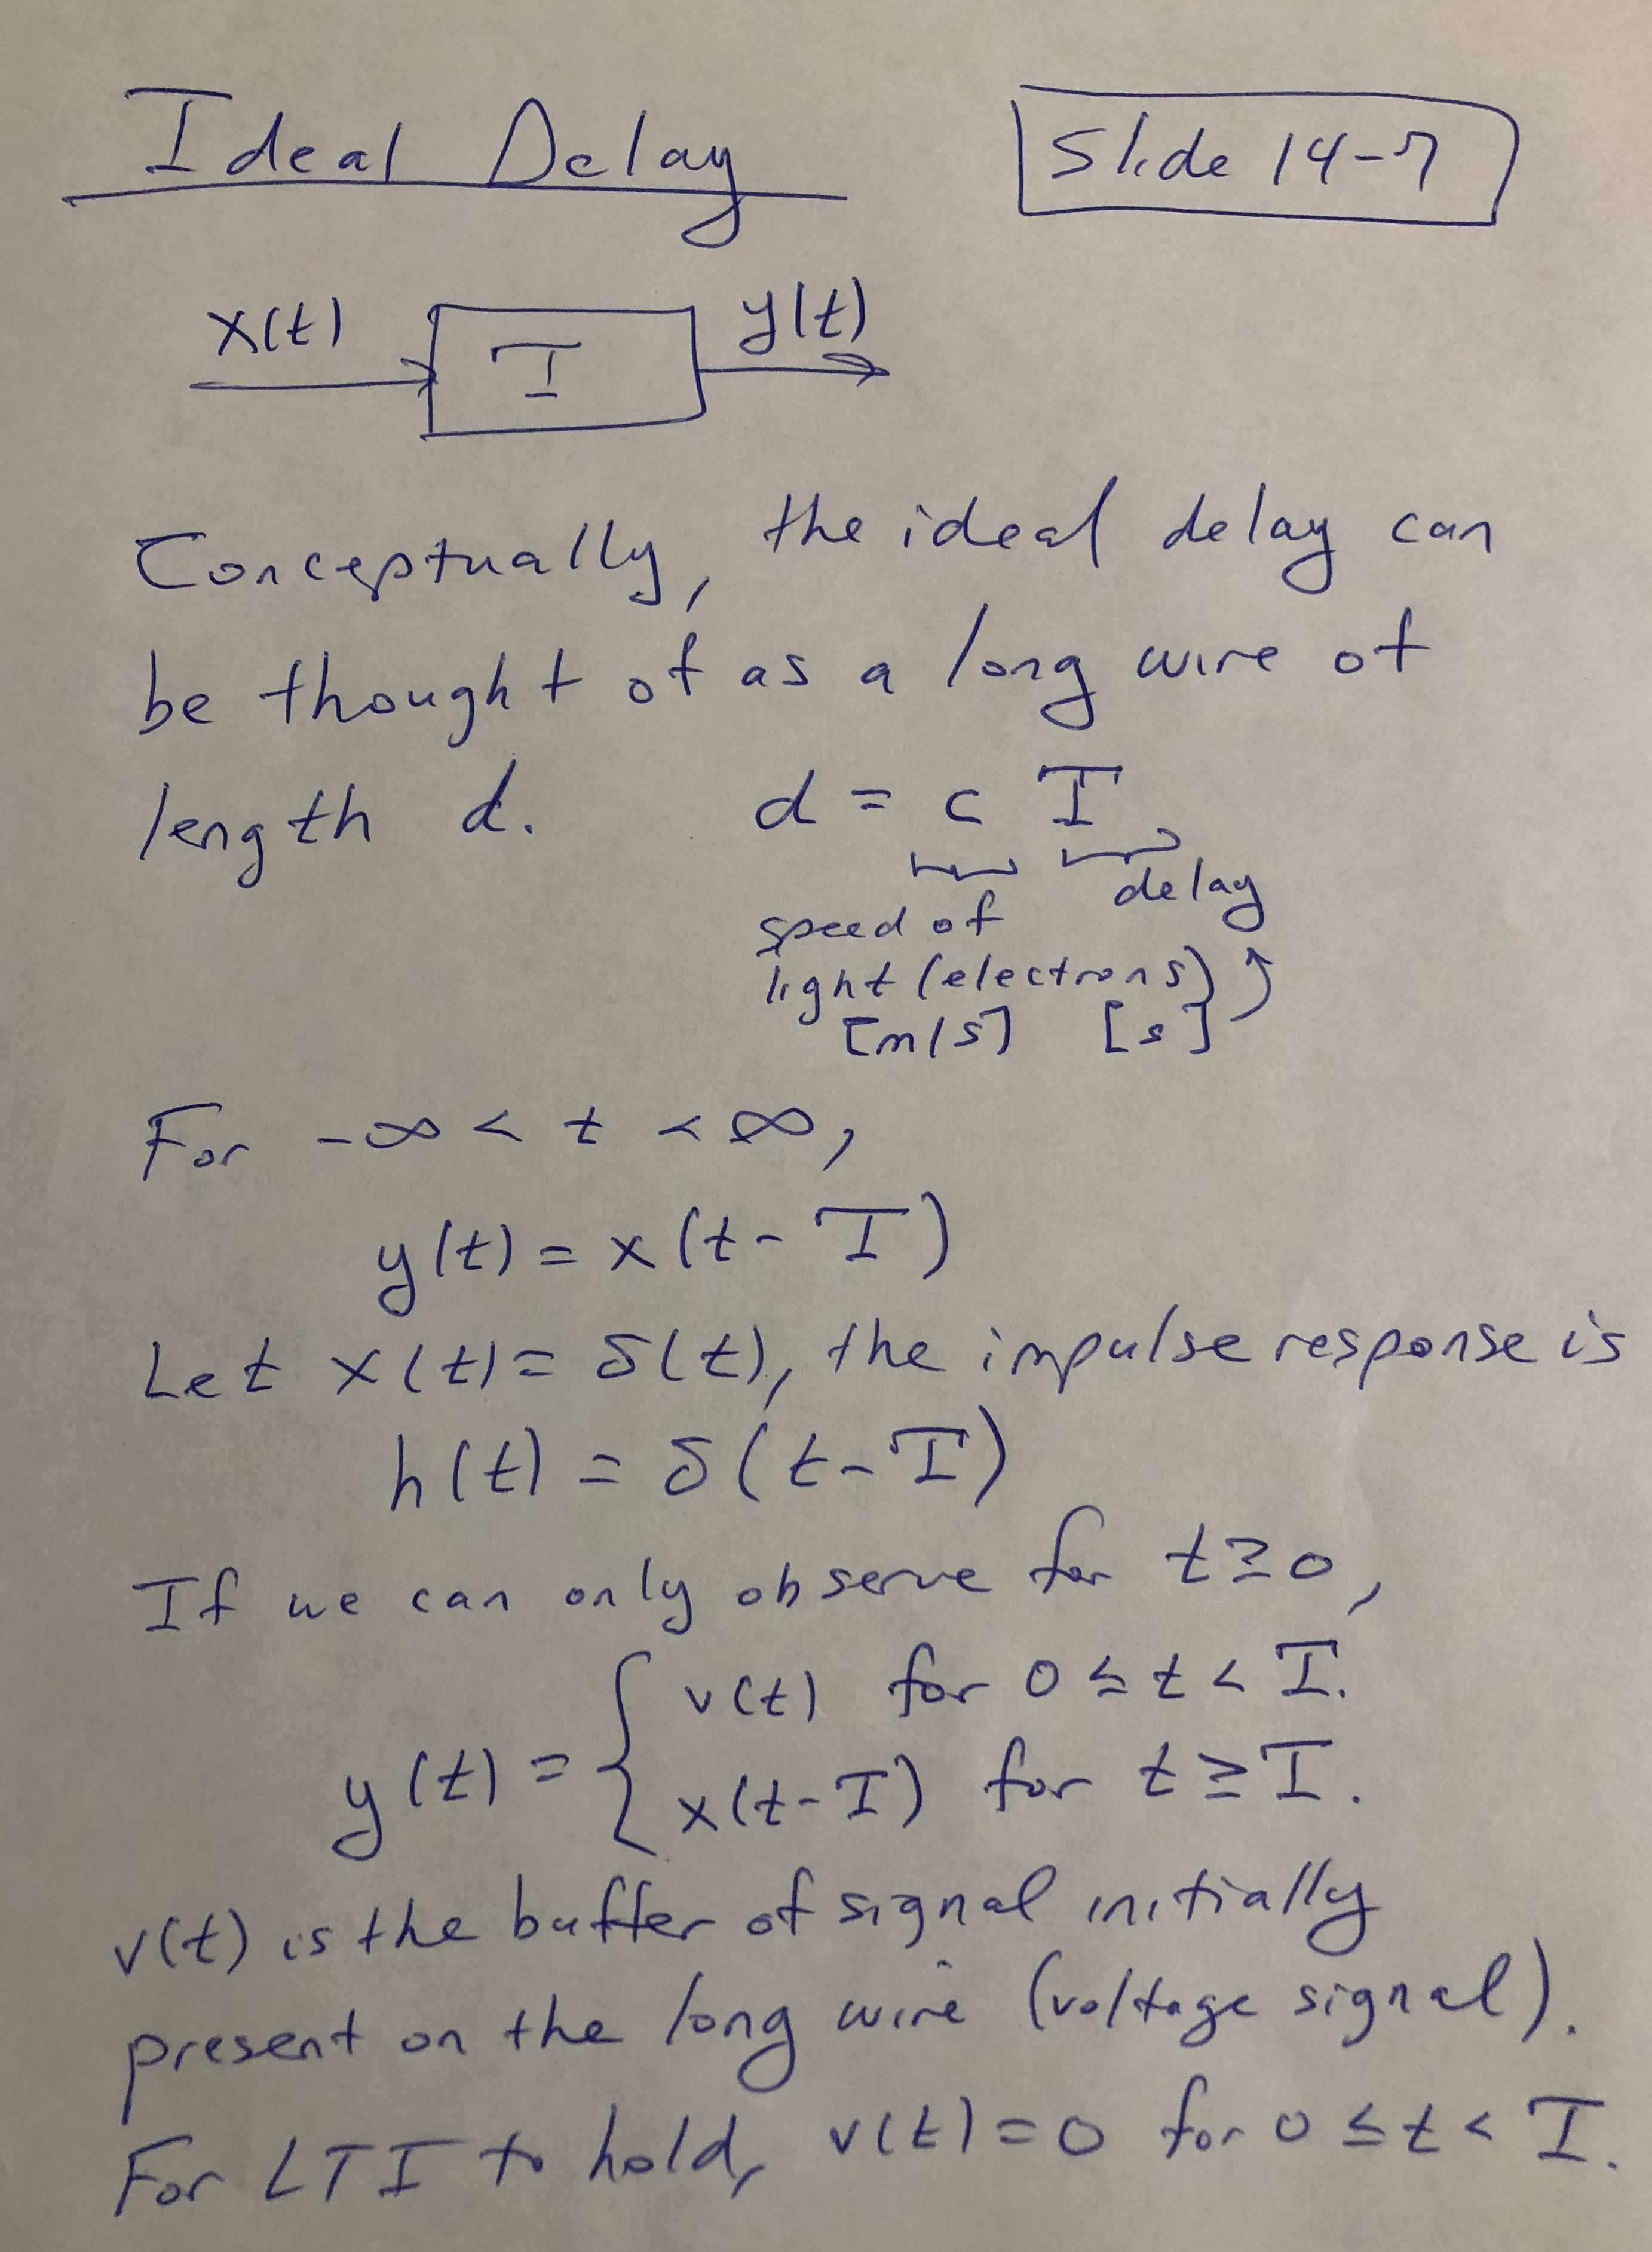 Ideal Delay
Slide 14-7
x(t) T y(t)
Conceptually, the ideal delay can
be thought of as a long wire of
length d. d = c T
delay
speed of
light (electrons)
[m/s] [s]
For -∞ < t < ∞,
y(t) = x(t-T)
Let x(t) = δ(t), the impulse response is
h(t) = δ(t-T)
If we can only observe for t≥0,
y(t) = { v(t) for 0 ≤ t < T.
x(t-T) for t ≥ T.
v(t) is the buffer of signal initially
present on the long wire (voltage signal).
For LTI to hold, v(t) = 0 for 0 ≤ t < T.